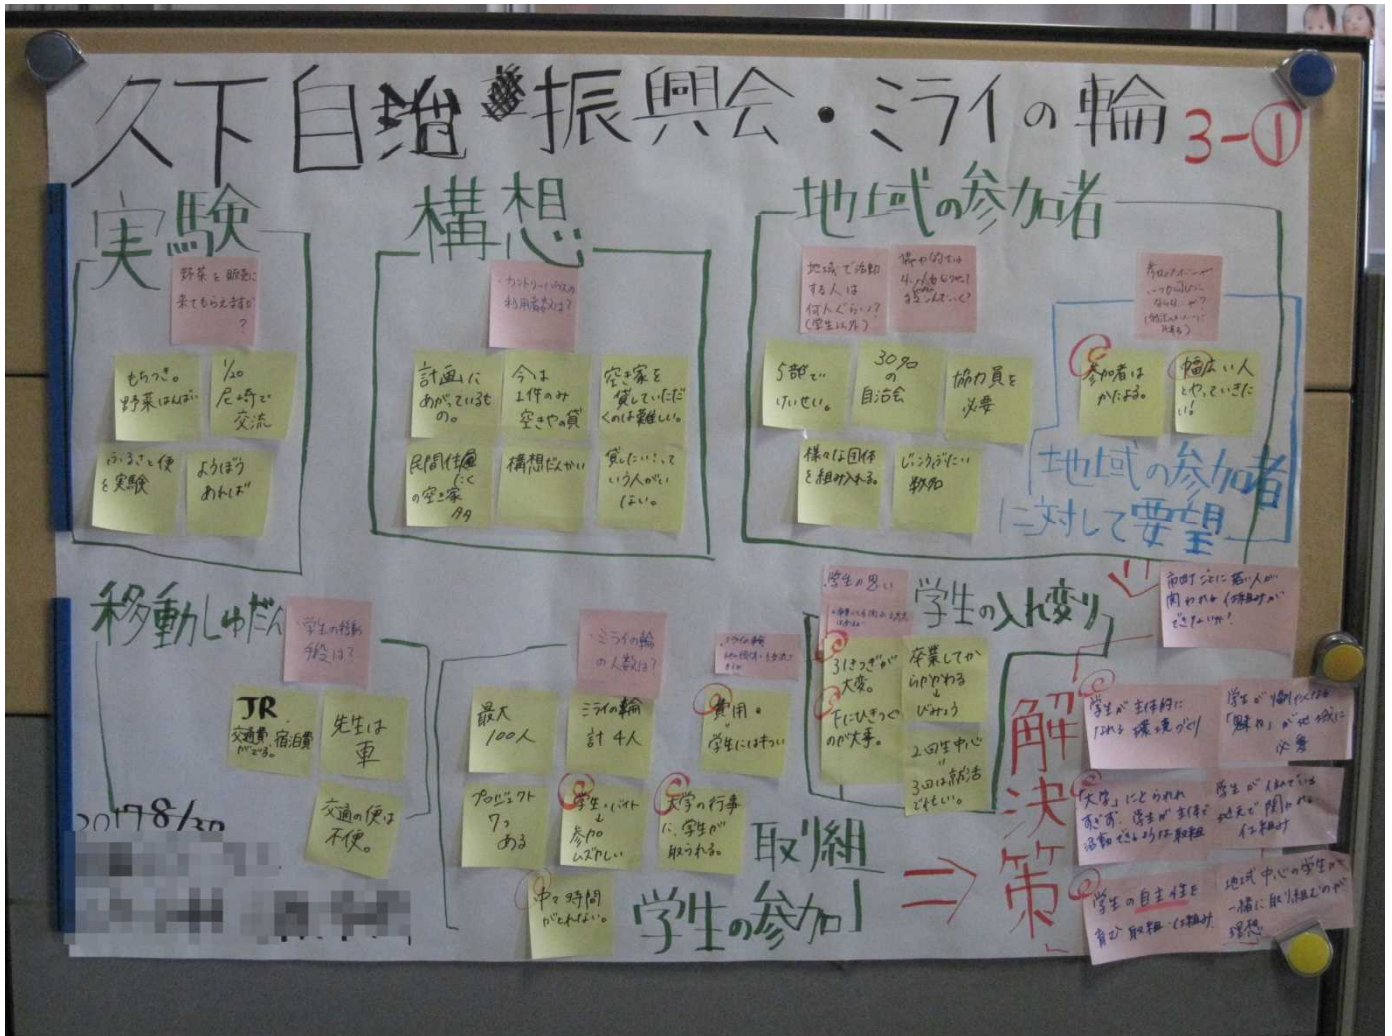 久下自治振興会・ミライの輪 3-①
実験
野菜を販売に
来てもらえますか
?
もちつき。
野菜はんばい
1/20
尼崎で
交流
ふるさと便
を実験
ようぼう
あれば
構想
・カントリーハウスの
利用者数は?
計画に
あがっているも
の。
今は
1件のみ
空きやの貸
空き家を
貸していただ
くのは難しい。
民間住
たく
の空き家
多々
構想だんかい
貸したい!って
いう人がい
ない。
地域の参加者
地域で活動
する人は
何人ぐらい?
(学生以外)
5部で
けいせい。
30%
の
自治会
協力員を
必要
様々な団体
を組み入れる。
じっこうぶたい
数名
参加者は
かたよる。
幅広い人
とやっていきた
い!
地域の参加者
に対して要望
移動しゅだん
・学生の移動
手段は?
JR
交通費 宿泊費
がでる。
先生は
車
交通の便は
不便。
2017 8/30
・ミライの輪
の人数は?
最大
100人
ミライの輪
計4人
費用・
学生にはキツい
プロジェクト
7つ
ある
学生・バイト
↓
参加
ムズかしい
大学の行事
に、学生が
取られる。
中々時間
がとれない。
取り組
学生の参加
学生の入れ変り
・学生の思い
引きつぎが
大変。
下にひきつぐ
のが大事。
卒業してか
らもかかわる
↓
びみょう
2回生中心
〃
3回は就活
で忙しい。
⇒
解決策
市町ごとに若い人が
関われる仕組みが
できないか?
学生が主体的に
なれる環境づくり
学生が帰りたくなる
「魅力」が地域に
必要
「大学」にとらわれ
すぎず、学生が主体で
活動できるような取組
学生が住んでいる
地元で関われる
仕組み
学生の自主性を
育む取組・仕組み
地域中心の学生が
一緒に取り組むのが
理想